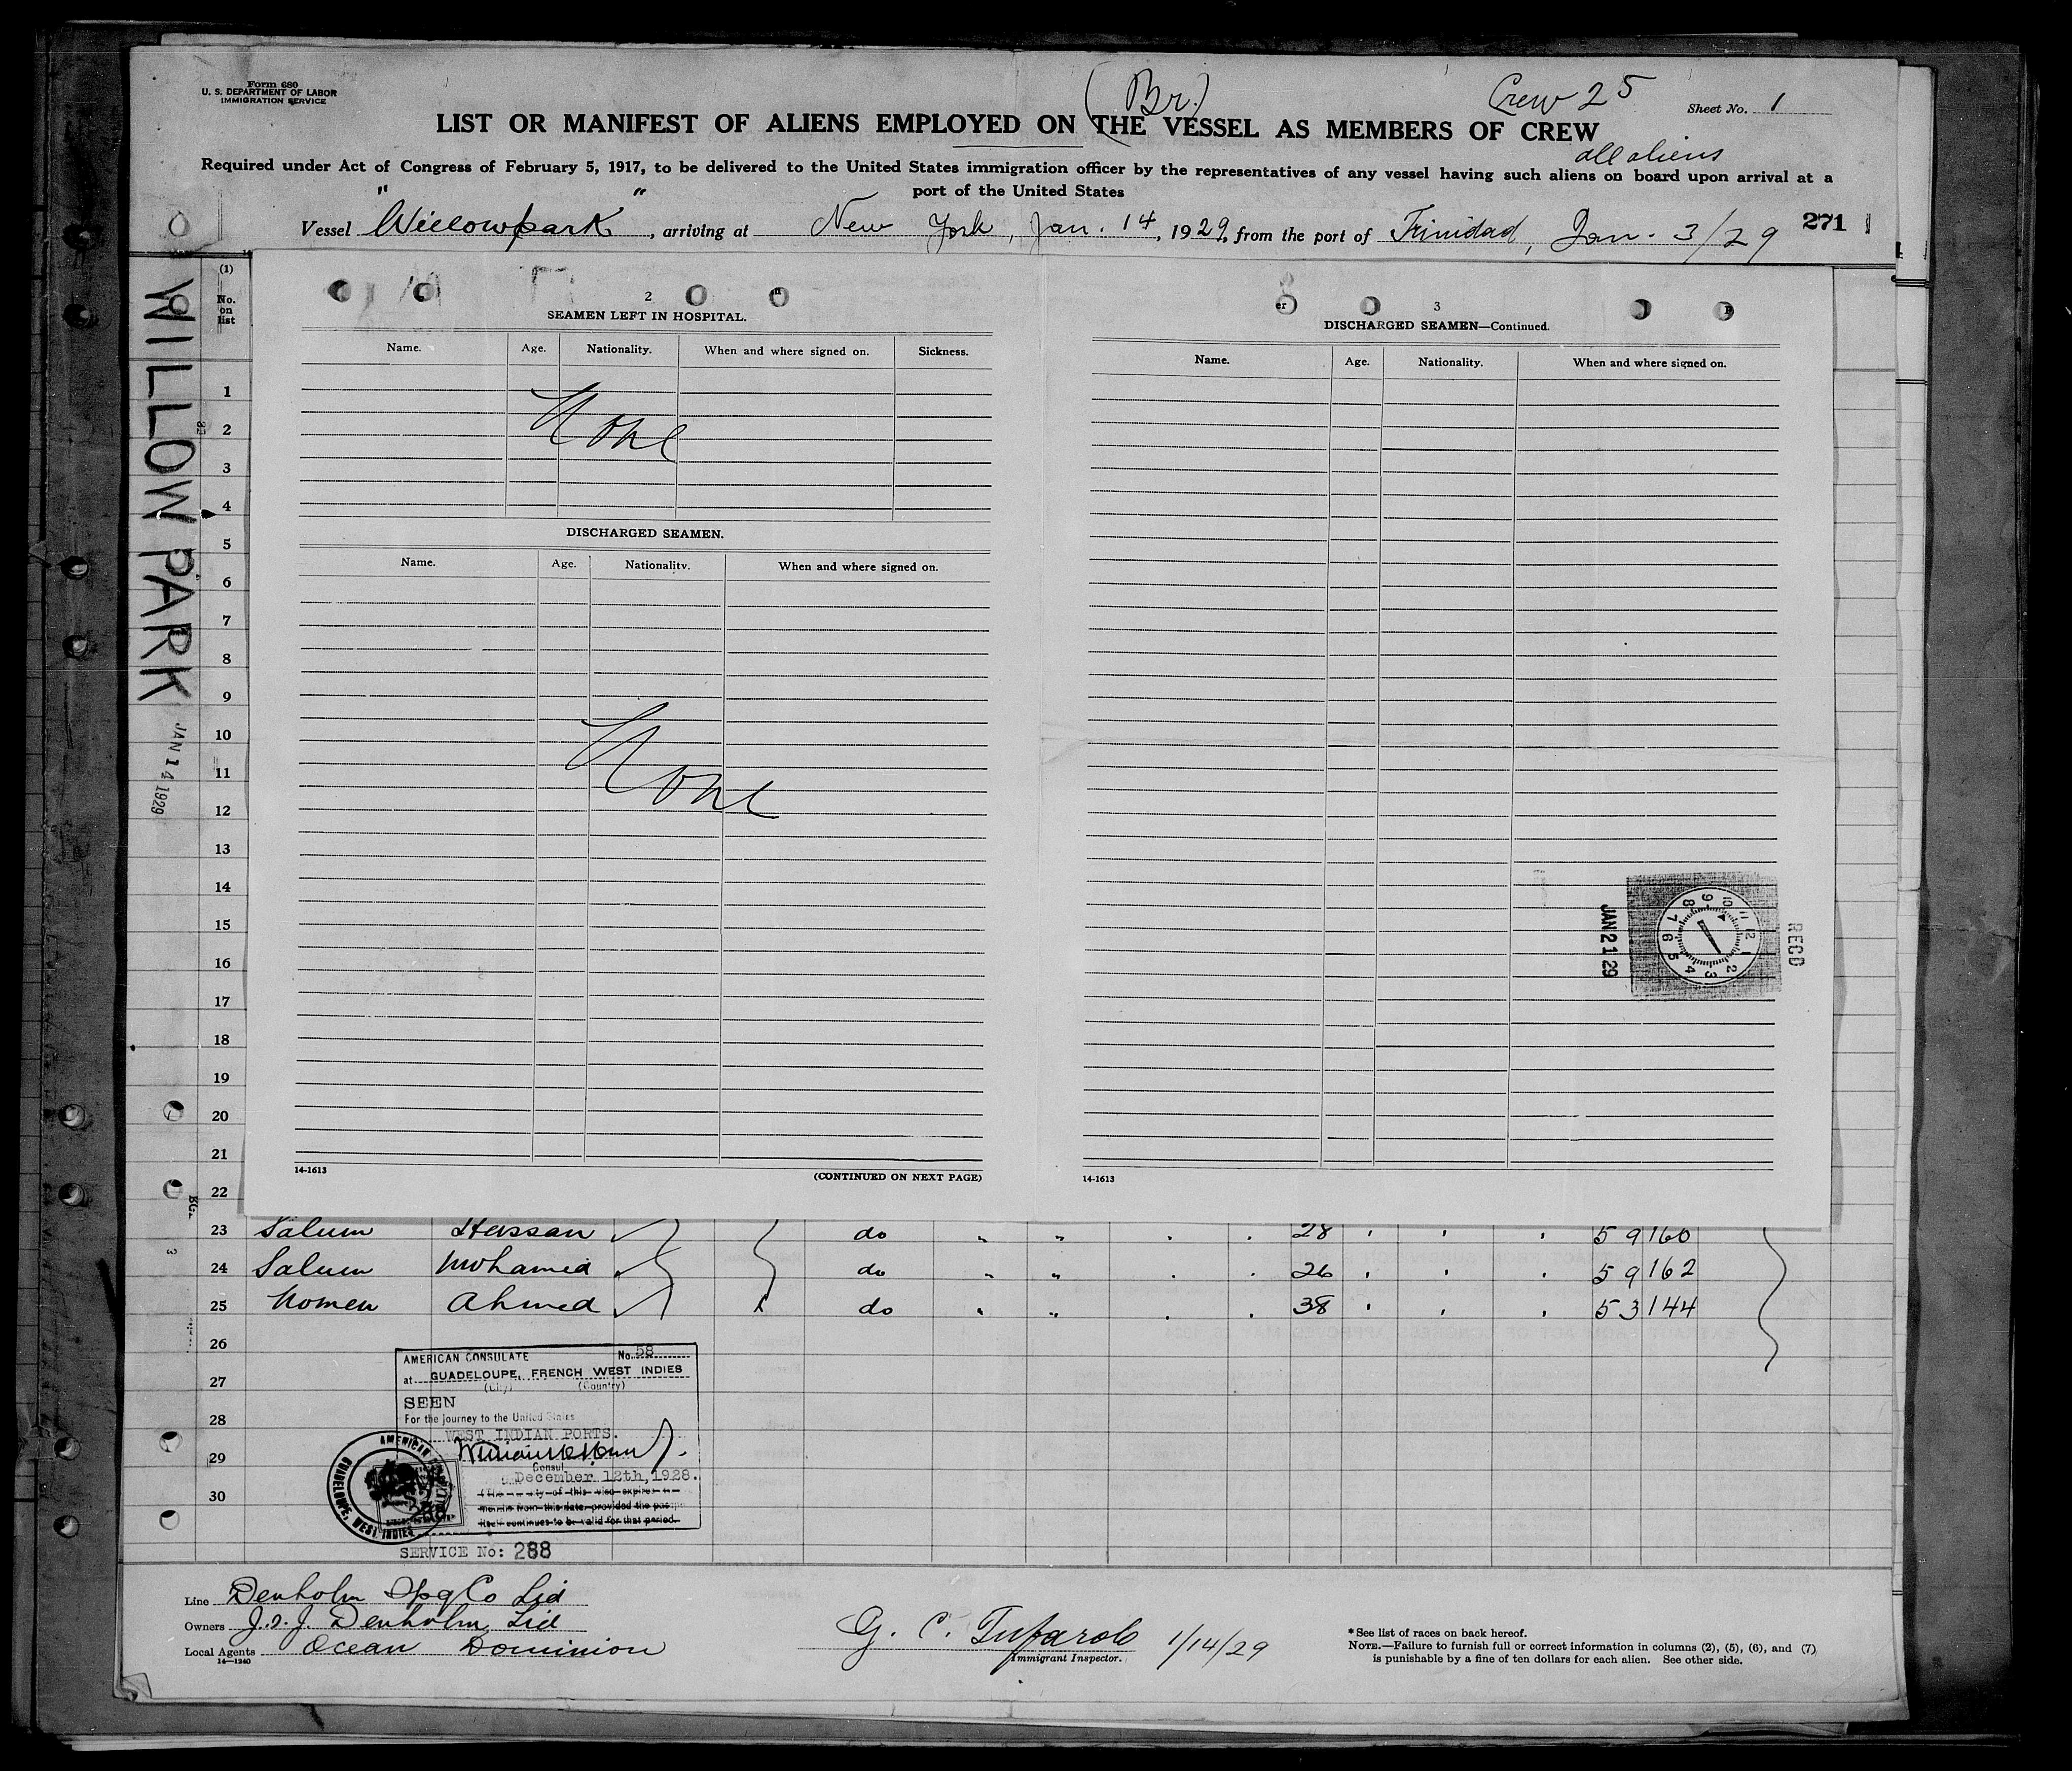 Form 680
U. S. DEPARTMENT OF LABOR
IMMIGRATION SERVICE
(Br.)
Crew 25
Sheet No. 1
LIST OR MANIFEST OF ALIENS EMPLOYED ON THE VESSEL AS MEMBERS OF CREW
all aliens
Required under Act of Congress of February 5, 1917, to be delivered to the United States immigration officer by the representatives of any vessel having such aliens on board upon arrival at a
port of the United States
Vessel "Willowpark", arriving at New York, Jan. 14, 1929, from the port of Trinidad, Jan. 3/29
271
WILLOW PARK
JAN 14 1929
(1)
No.
on
list
1
2
3
4
5
6
7
8
9
10
11
12
13
14
15
16
17
18
19
20
21
22
2
SEAMEN LEFT IN HOSPITAL.
Name. Age. Nationality. When and where signed on. Sickness.
None
DISCHARGED SEAMEN.
Name. Age. Nationality. When and where signed on.
None
14-1613
(CONTINUED ON NEXT PAGE)
3
DISCHARGED SEAMEN—Continued.
Name. Age. Nationality. When and where signed on.
RECD
JAN 21 29
14-1613
23 Salum Hassan do " " 28 59160
24 Salum Mohamed do " " 26 59162
25 Nomen Ahmed do " " 38 53144
26
27
28
29
30
AMERICAN CONSULATE No. 58
at GUADELOUPE, FRENCH WEST INDIES
(City) (Country)
SEEN
For the journey to the United States
WEST INDIAN PORTS.
Consul
December 12th, 1928.
month from this date, provided the
itself continues to be valid for that period.
AMERICAN
GUADELOUPE, WEST INDIES
SERVICE No: 288
Line Denholm Spg Co Ltd
Owners J. & J. Denholm Ltd
Local Agents Ocean Dominion
14—1240
G. C. Tufarolo 1/14/29
Immigrant Inspector.
* See list of races on back hereof.
NOTE.—Failure to furnish full or correct information in columns (2), (5), (6), and (7)
is punishable by a fine of ten dollars for each alien. See other side.